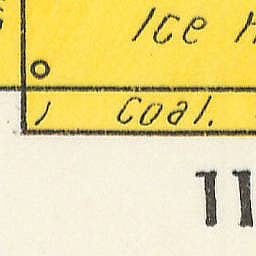 Ice
1 Coal.
11